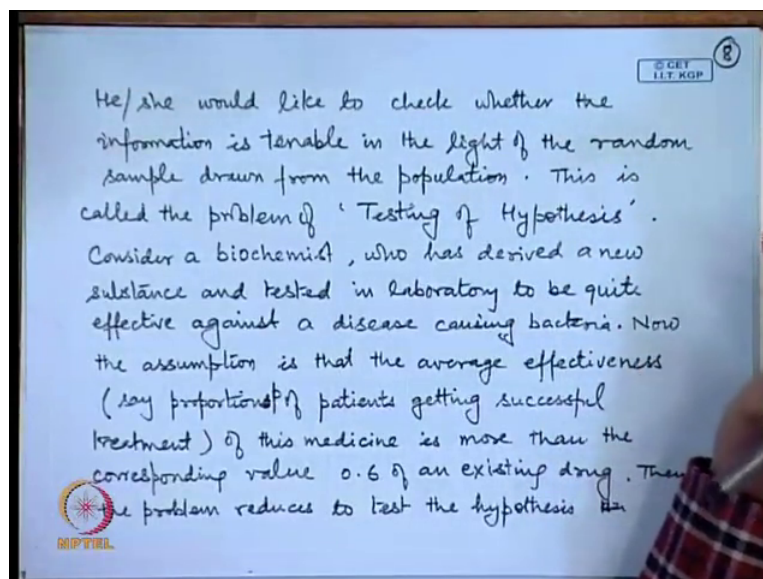 8
© CET
I.I.T. KGP
He/she would like to check whether the
information is tenable in the light of the random
sample drawn from the population. This is
called the problem of 'Testing of Hypothesis'.
Consider a biochemist, who has derived a new
substance and tested in laboratory to be quite
effective against a disease causing bacteria. Now
the assumption is that the average effectiveness
(say proportion of patients getting successful
treatment) of this medicine is more than the
corresponding value 0.6 of an existing drug. Then
the problem reduces to test the hypothesis
NPTEL